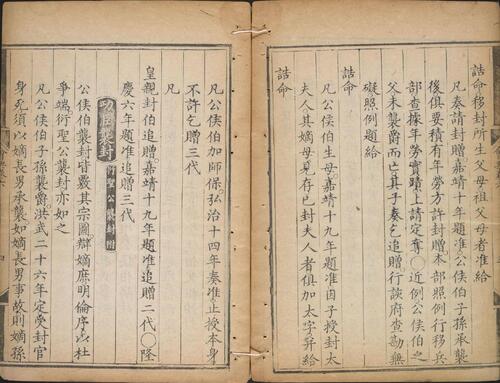 誥命移封所生父母祖父母者准給
凡奏請封贈嘉靖十年題准公侯伯子孫承襲
後俱要積有年勞方許封贈本部照例行移兵
部查據年勞實蹟上請定奪〇近例公侯伯之
父未襲爵而亡其子奏乞追贈行該府查勘無
礙照例題給
誥命
凡公侯伯生母嘉靖十九年題准因子授封太
夫人其嫡母見存已封夫人者俱加太字昇給
誥命
凡公侯伯加師保弘治十四年奏准止授本身
不許乞贈三代
凡
皇親封伯追贈嘉靖十九年題准追贈二代〇隆
慶六年題准追贈三代
功臣襲封 衍聖公襲封附
公侯伯襲封皆覈其宗圖辯嫡庶明倫序以杜
爭端衍聖公襲封亦如之
凡公侯伯子孫襲爵洪武二十六年定受封官
身死須以嫡長男承襲如嫡長男事故則嫡孫